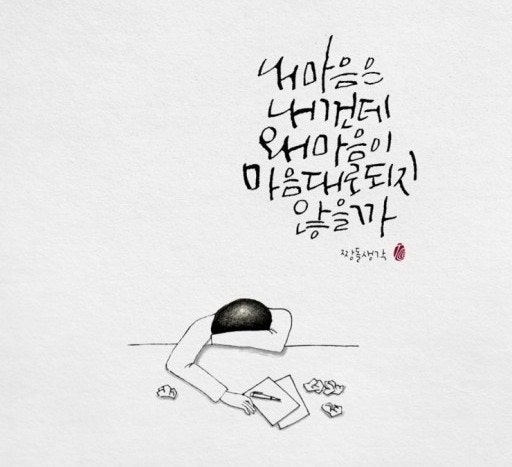 내마음은
내껀데
왜마음이
마음대로되지
않을까
짱돌생각